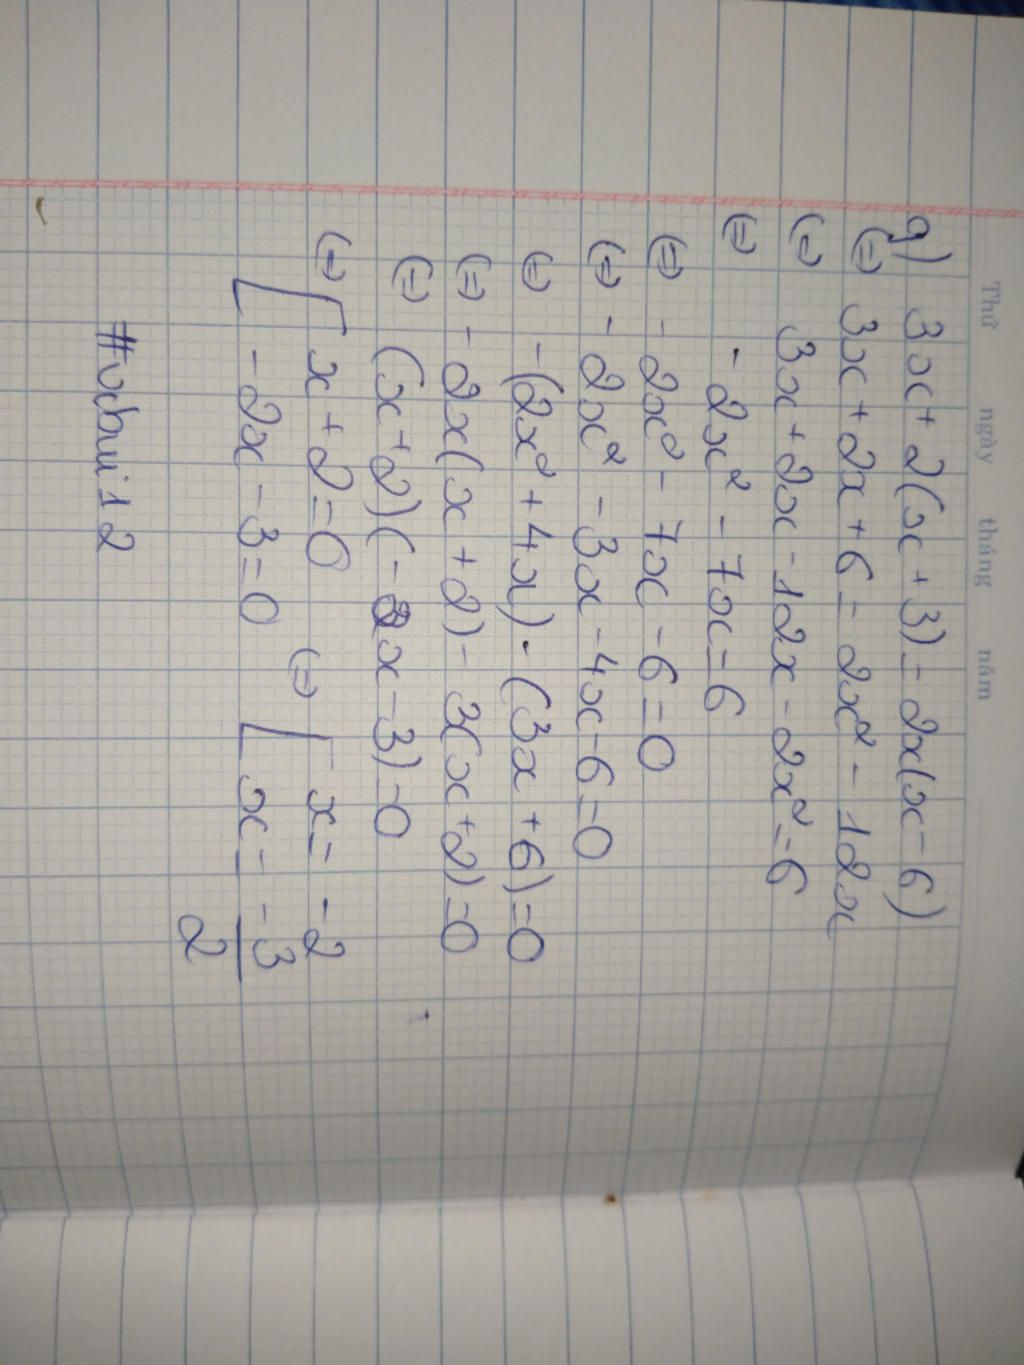 Thứ ngày tháng năm
a) 3x + 2(x + 3) = 2x(x - 6)
(=) 3x + 2x + 6 = 2x² - 12x
(=) 3x + 2x - 12x - 2x² = 6
(=) - 2x² - 7x = 6
(=) - 2x² - 7x - 6 = 0
(=) - 2x² - 3x - 4x - 6 = 0
(=) -(2x² + 4x) - (3x + 6) = 0
(=) - 2x(x + 2) - 3(x + 2) = 0
(=) (x + 2)(- 2x - 3) = 0
(=) [ x + 2 = 0 (=) [ x = -2
- 2x - 3 = 0 x = -3/2
#vxbui12